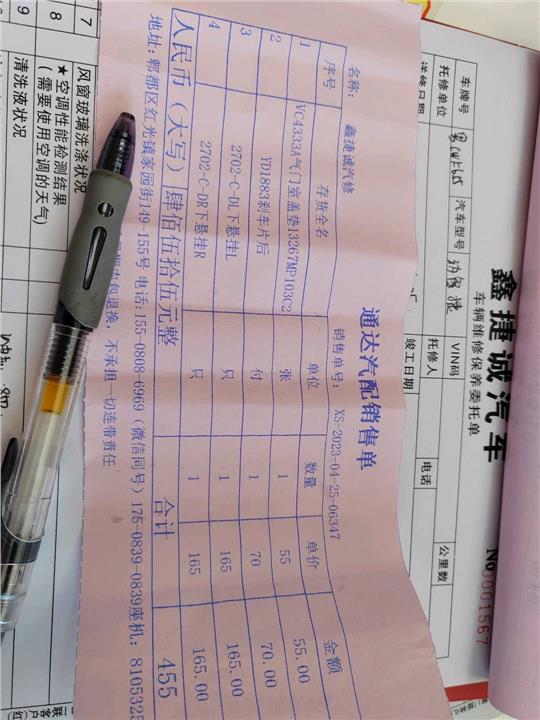 通达汽配销售单
名称: 鑫捷诚汽修 销售单号: XS-2023-04-25-06347
序号 存货全名 单位 数量 单价 金额
1 VC4333A气门室盖垫13267MP103C2 张 1 55 55.00
2 YD1883刹车片后 付 1 70 70.00
3 2702-C-DL下悬挂L 只 1 165 165.00
4 2702-C-DR下悬挂R 只 1 165 165.00
人民币(大写) 肆佰伍拾伍元整 合计 455
地址: 郫都区红光镇家园街149-155号 电话: 155-0808-6969 (微信同号) 175-0839-0839座机: 8105325
包退换, 不承担一切连带责任
鑫捷诚汽车
车辆维修保养委托单
No 0001567
车牌号 汽车型号 VIN码 公里数
托修单位 托修人 电话
送修日期 竣工日期
7 风窗玻璃洗涤状况
8 ★空调性能检测结果
(需要使用空调的天气)
9 清洗液状况